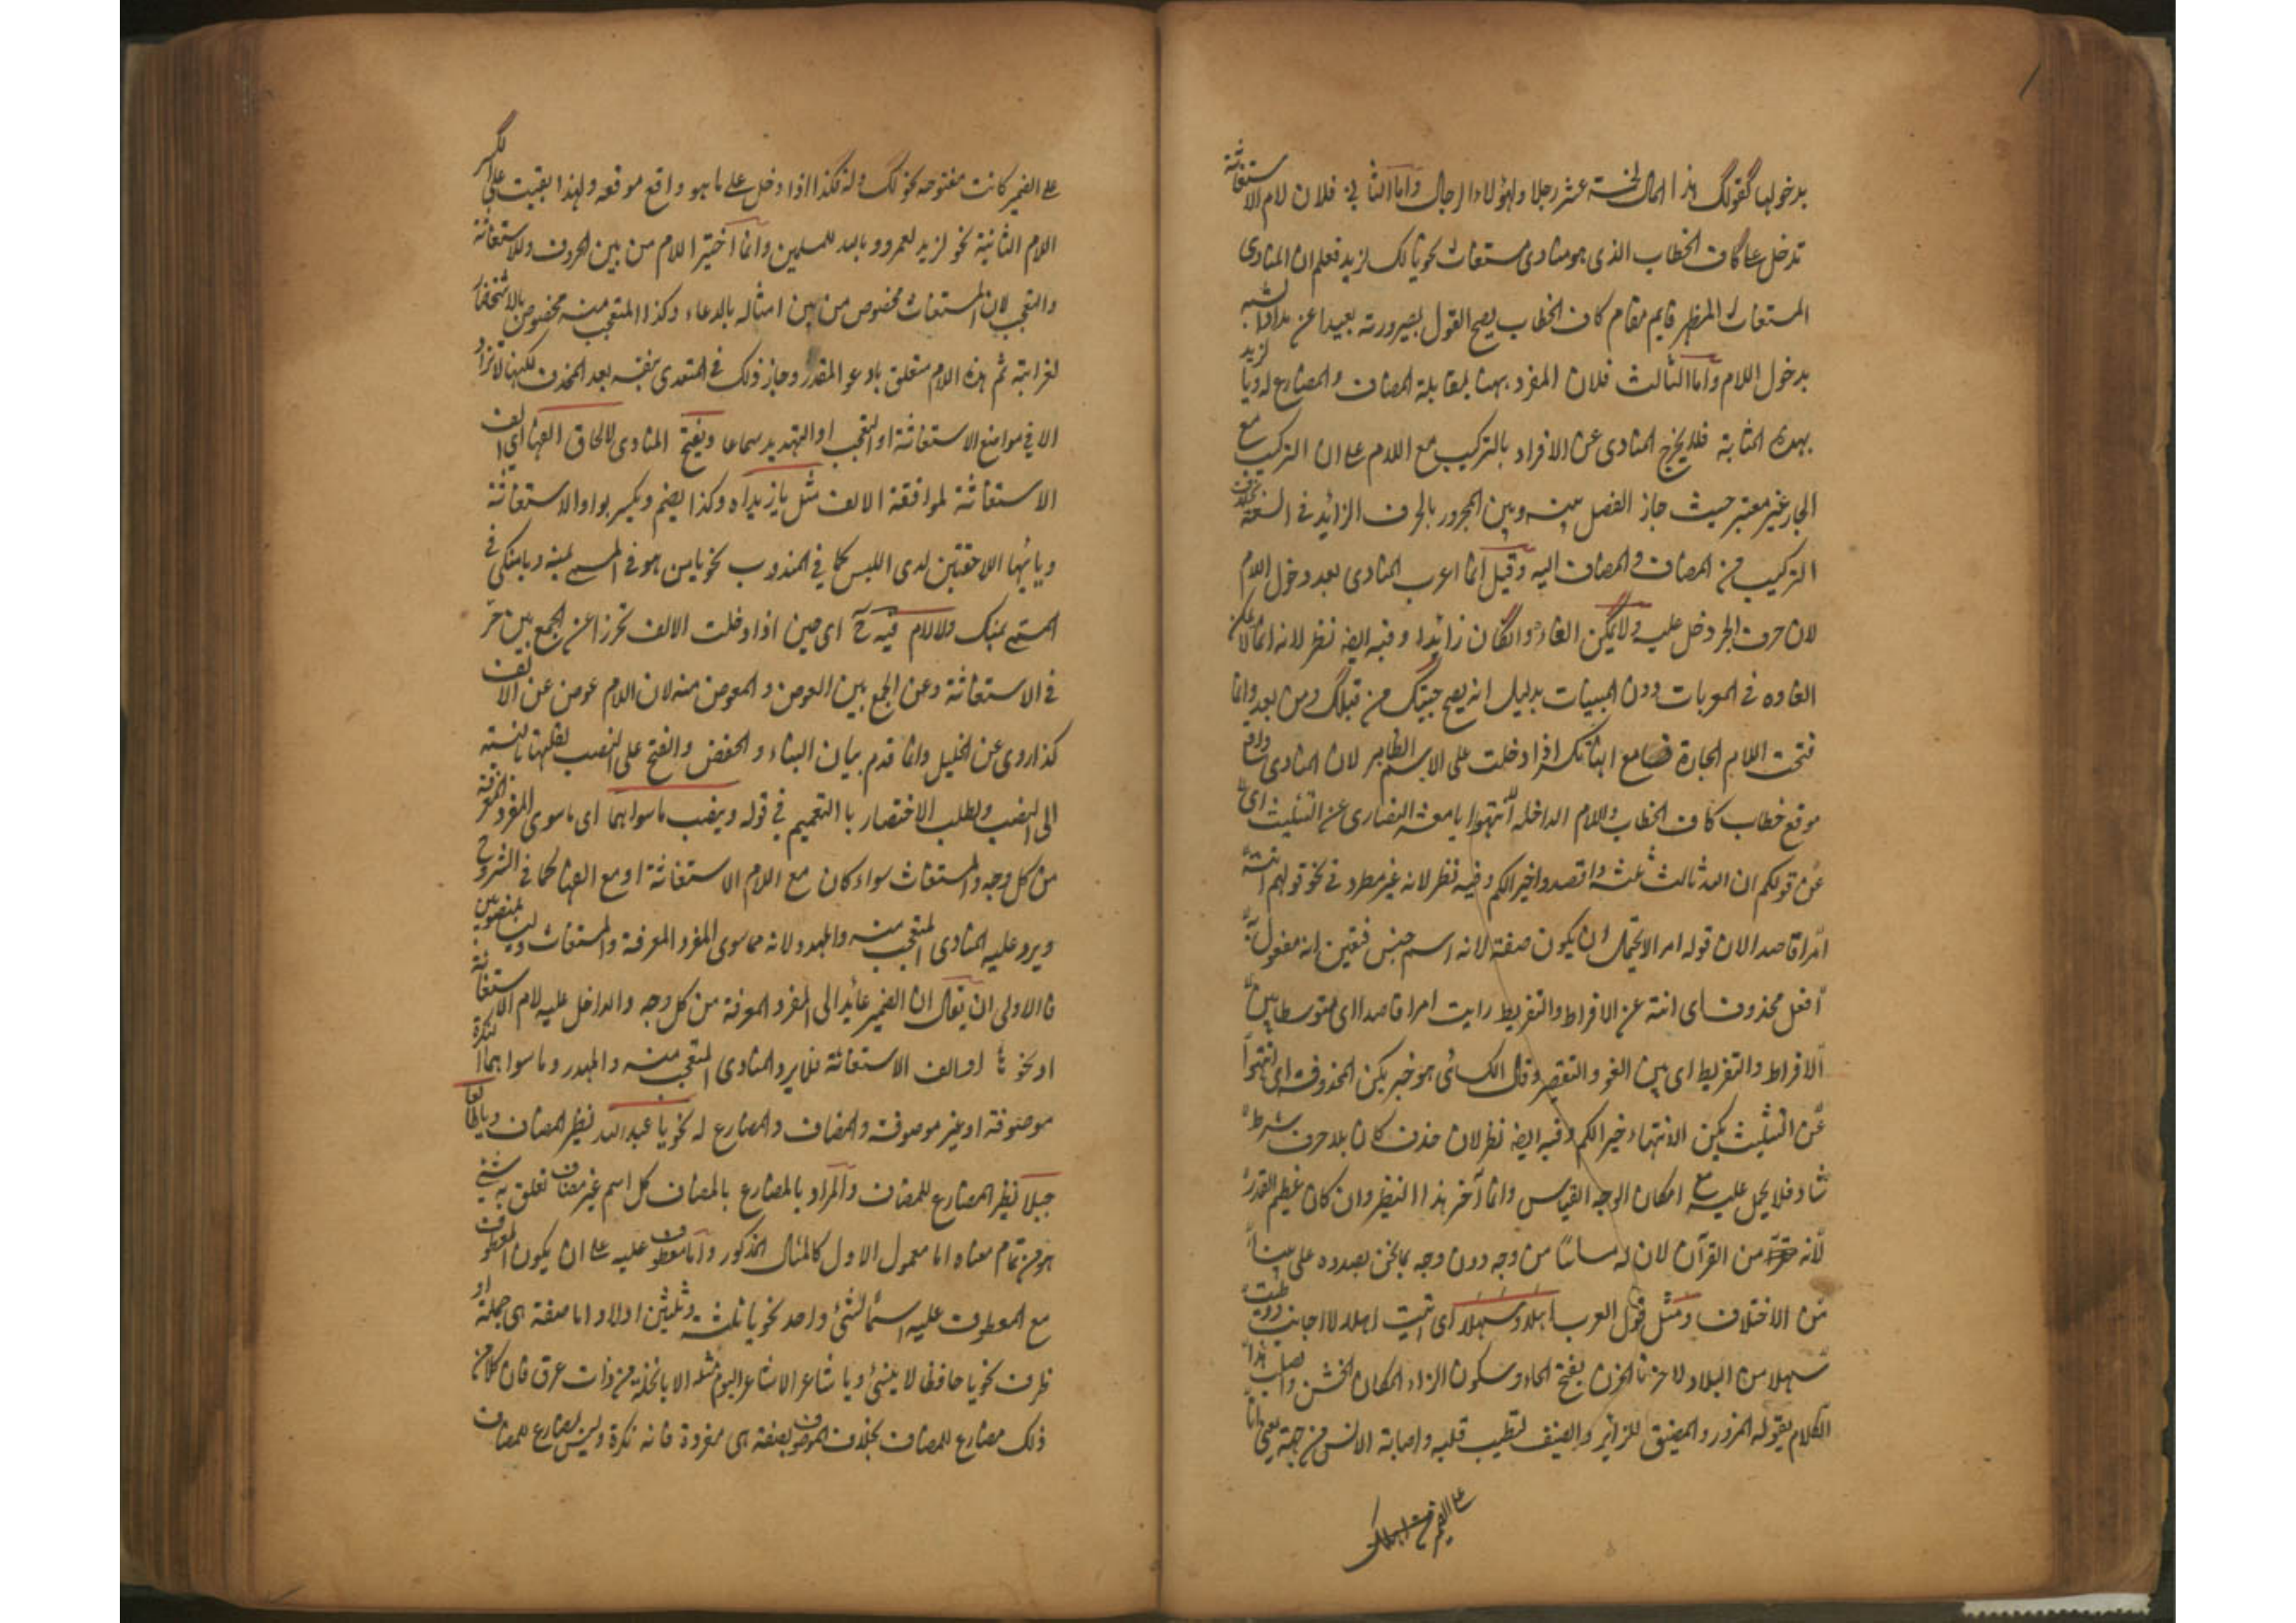 بدخولها كقولك هذا المال لخمسة عشر رجلا ولهؤلاء الرجال واما الثاني فلان لام الاستغاثة
تدخل على كاف الخطاب الذى هو منادى مستغاث نحو يا لك لزيد فعلم ان المنادى
المستغاث المظهر قايم مقام كاف الخطاب يصح القول بصيرورته بعيدا عن
بدخول اللام واما الثالث فلان المفرد ههنا لمقابلة المضاف والمضارع له ويا لزيد
بهذه المثابة فلا يخرج المنادى عن الافراد بالتركيب مع اللام على ان التركيب مع
الجار غير معتبر حيث جاز الفصل بينه وبين المجرور بالحرف الزائد فى السعة بخلاف
التركيب من المضاف والمضاف اليه وقيل انما اعرب المنادى بعد دخول اللام
لان حرف الجر دخل عليه ولا يمكن الغاؤه وان كان زائدا وفيه ايضا نظر لانه انما لا يمكن
الغاوه فى المعربات دون المبنيات بدليل انه يصح جيتك من قبلك ومن بعد وانما
فتحت اللام الجارة مع انها تكسر اذا دخلت على الاسم الظاهر لان المنادى واقع
موقع خطاب كاف الخطاب واللام الداخله انتهوا يا معشر النصارى عن التثليث اى
عن قولكم ان الله ثالث ثلثة واقصدوا خيرا لكم وفيه نظر لانه غير مطرد فى نحو قولهم انته
امرا قاصدا لان قوله امرا لا يحتمل ان يكون صفة لانه اسم جنس فتعين انه مفعول به
افعل محذوف اى انته عن الافراط والتفريط رايت امرا قاصدا اى متوسطا بين
الافراط والتفريط اى بين الغلو والتقصير وقال الكسائى هو خبر يكن المحذوف اى انتهوا
عن التثليث يكن الانتهاء خيرا لكم وفيه ايضا نظر لان حذف كان بلا حرف شرط
شاذ فلا يحمل عليه مع امكان الوجه القياس وانما آخر هذا النظير وان كان عظيم القدر
لانه من القرآن لان له مساسا من وجه دون وجه بما نحن بصدده على
من الاختلاف ومثل قول العرب اهلا وسهلا اى اتيت اهلا لا اجانب ووطئت
سهلا من البلاد لا حزنا الحزن بفتح الحاء وسكون الزاء المكان الخشن واصل هذا
الكلام يقوله المزور والمضيف للزائر والضيف لتطييب قلبه واصابة الانس من جهة يعنى
على الضمير
على الضمير كانت مفتوحة نحو لك وله فكذا اذا دخل على ما هو واقع موقعه ولهذا بقيت على الكسر
اللام الثانية نحو لزيد لعمرو ويا لله للمسلمين وانما اختير اللام من بين الحروف وللاستغاثة
والتعجب لان المستغاث مخصوص من بين امثاله بالدعاء وكذا المتعجب منه مخصوص بالاستحضار
لغرابته ثم هذه اللام متعلق بادعو المقدر وجاز ذلك فى المتعدى بنفسه بعد الحذف لكنها لا تزاد
الا فى مواضع الاستغاثة او التعجب او التهديد سماعا ويفتح المنادى لالحاق الفها اى الف
الاستغاثة لموافقة الالف مثل يا زيداه وكذا يضم ويكسر بواو الاستغاثة
ويائها اللاحقتين لدى اللبس كما فى المندوب نحو يا من هو فى المسمى
المسمى بمنك ولا لام فيه ح اى حين اذا دخلت الالف تحرزا عن الجمع بين
فى الاستغاثة وعن الجمع بين العوض والمعوض منه لان اللام عوض عن الالف
كذا روى عن الخليل وانما قدم بيان البناء والخفض والفتح على النصب لقلتها بالنسبة
الى النصب ولطلب الاختصار بالتعميم فى قوله وينصب ما سواهما اى ما سوى المفرد المعرفة
من كل وجه والمستغاث سواء كان مع اللام الاستغاثة او مع الفها كما فى الشروح
ويرد عليه المنادى المتعجب منه والمهدد لانه مما سوى المفرد المعرفة والمستغاث وليسا بمنصوبين
فالاولى ان يقال ان الضمير عائد الى المفرد المعرفة من كل وجه والداخل عليه لام الاستغاثة
او نحوها او الف الاستغاثة فلا يرد المنادى المتعجب منه والمهدد وما سواهما اما نكرة
موصوفة او غير موصوفة والمضاف والمضارع له نحو يا عبد الله نظير المضاف ويا طالعا
جبلا نظير المضارع للمضاف والمراد بالمضارع بالمضاف كل اسم غير مضاف تعلق به شئ
هو من تمام معناه اما معمول الاول كالمثال المذكور واما معطوف عليه على ان يكون المعطوف
مع المعطوف عليه اسما لشئ واحد نحو يا ثلثة وثلثين اولا واما صفة هى جملة او
ظرف نحو يا حافظا لا ينسى ويا شاعرا لا شاعر اليوم مثله الا يا نخلة من ذات عرق فان كلا من
ذلك مضارع للمضاف بخلاف الموصوف بصفة هى مفردة فانه نكرة وليس بمضارع للمضاف